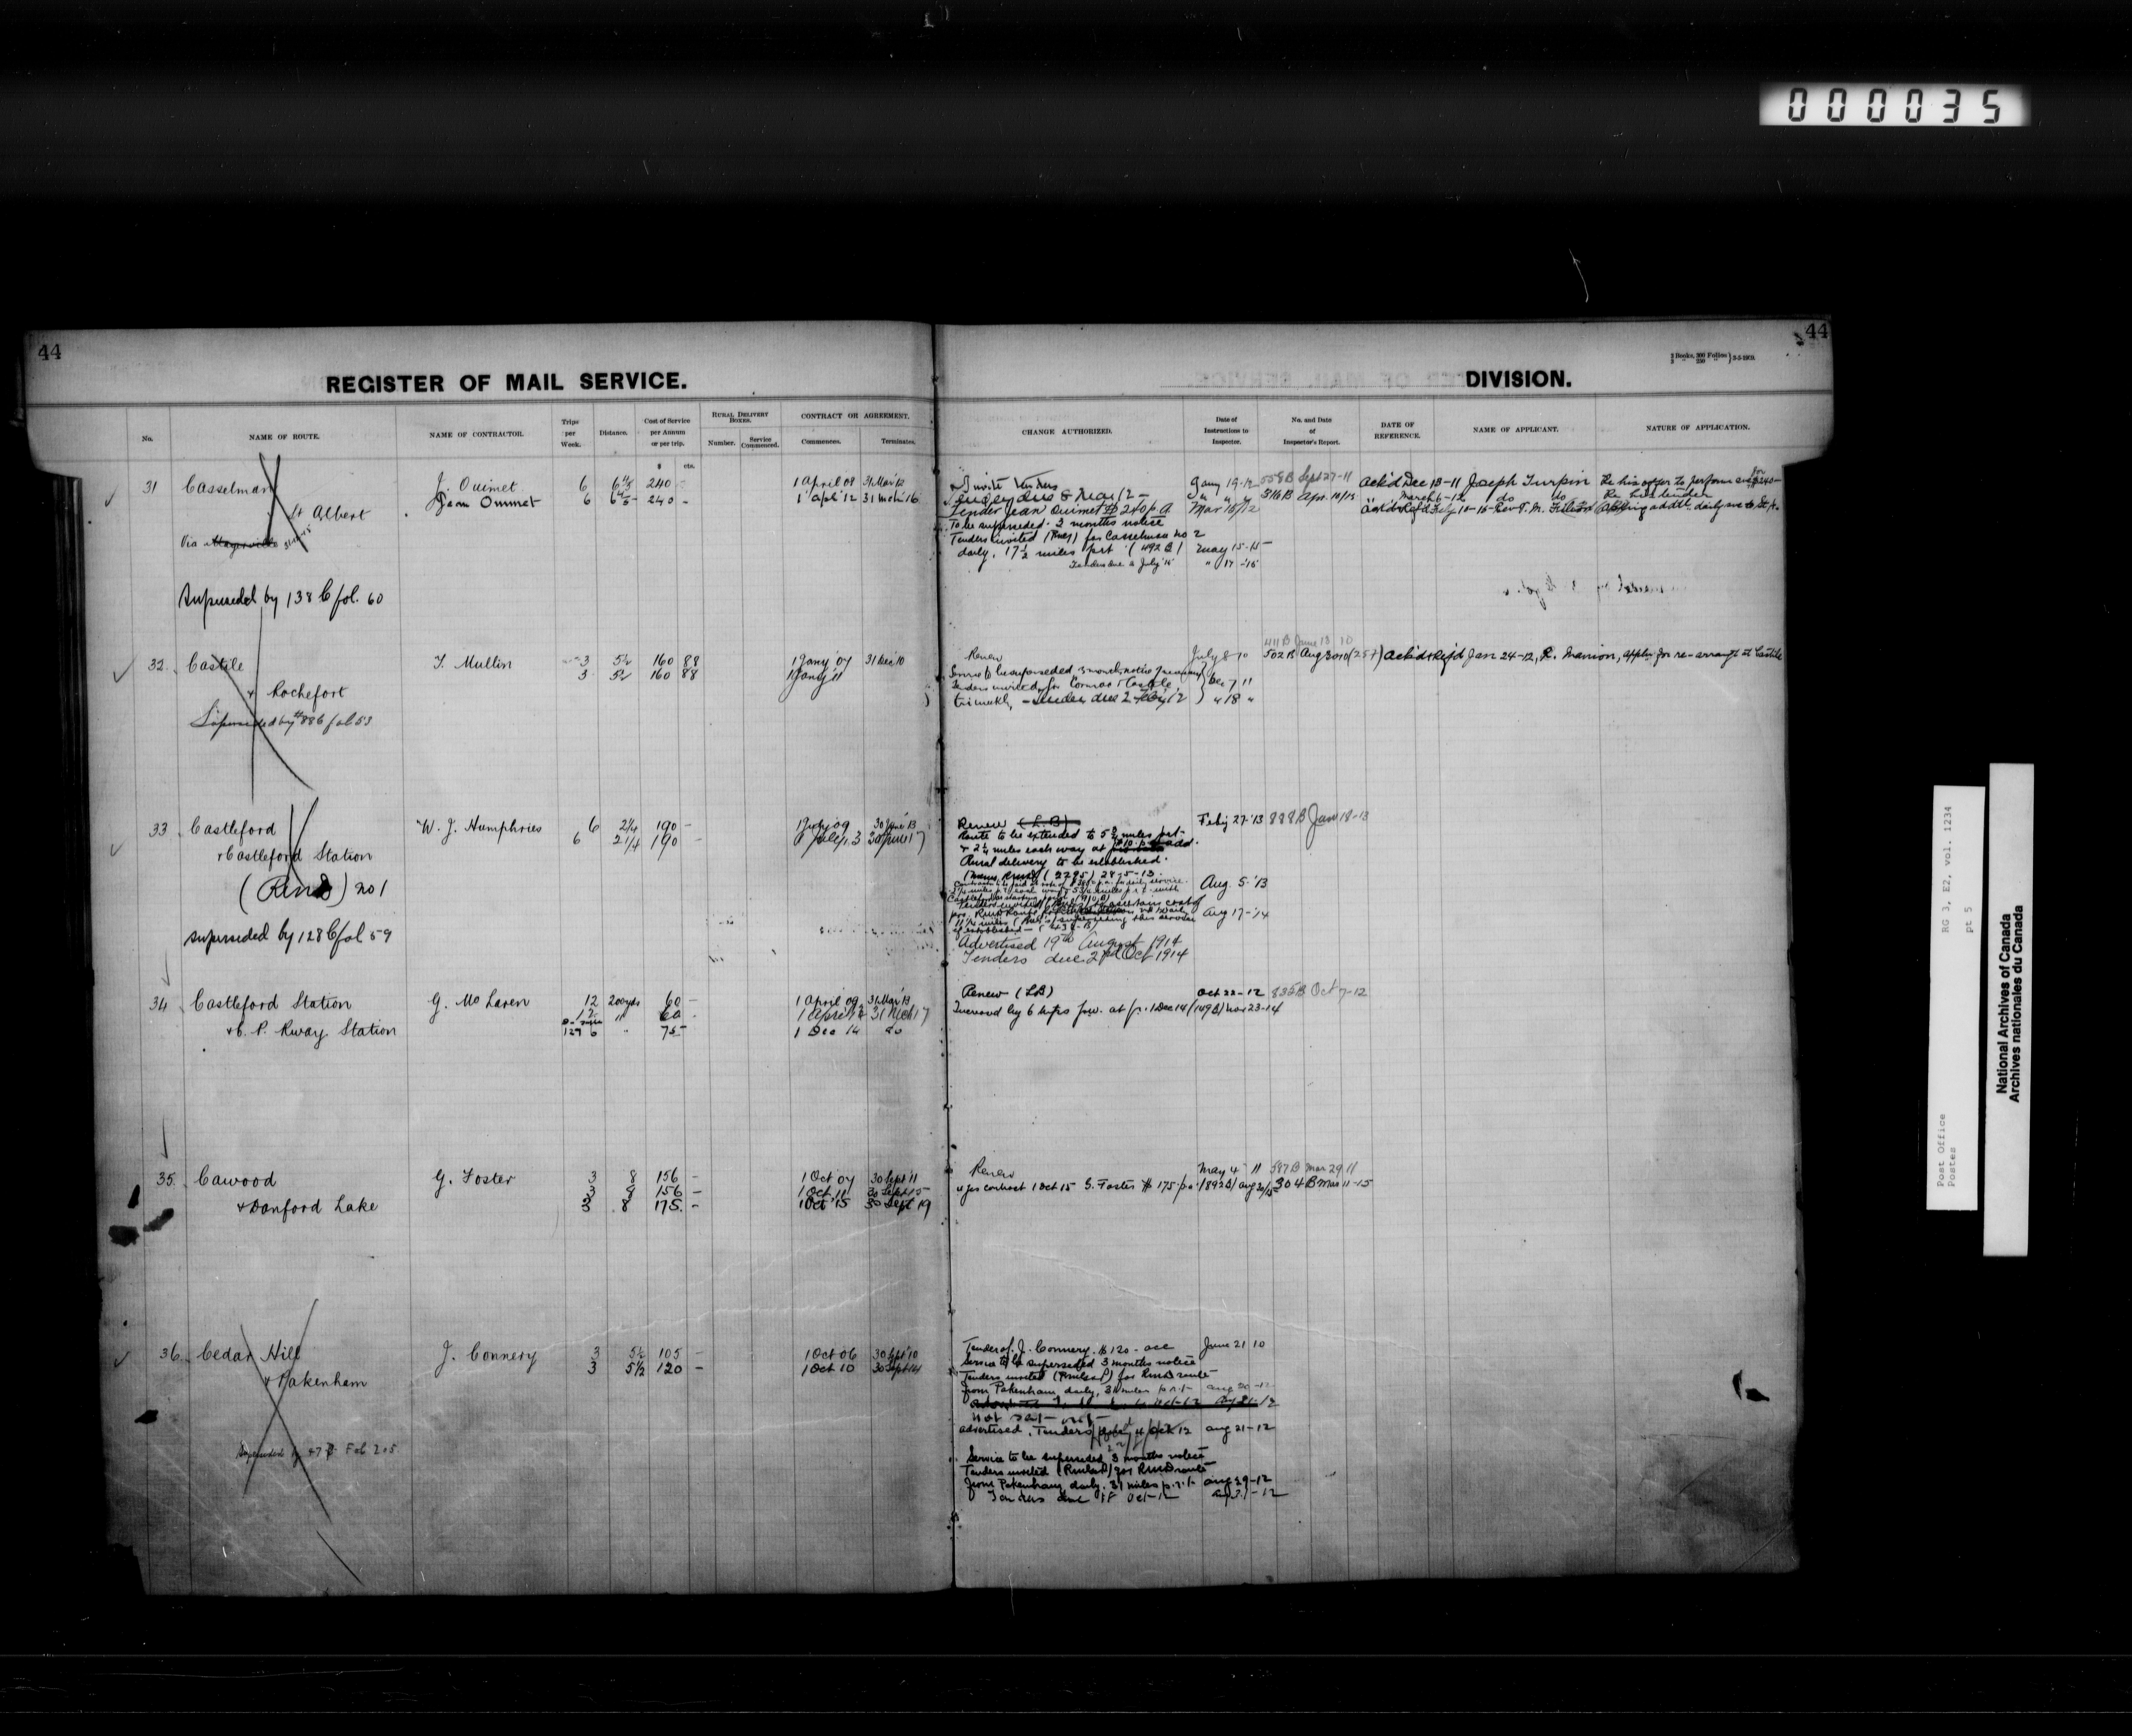 000035
44
44
2 Books, 300 Folios
3 " 250 " } 5-5-1909.
REGISTER OF MAIL SERVICE.
DIVISION.
No.
NAME OF ROUTE.
NAME OF CONTRACTOR.
Trips per Week.
Distance.
Cost of Service per Annum or per trip.
RURAL DELIVERY BOXES.
Number.
Service Commenced.
CONTRACT OR AGREEMENT.
Commences.
Terminates.
CHANGE AUTHORIZED.
Date of Instructions to Inspector.
No. and Date of Inspector's Report.
DATE OF REFERENCE.
NAME OF APPLICANT.
NATURE OF APPLICATION.
$ cts.
31 Casselman J. Ouimet 6 240 - 1 April 08 31 Mar 12
Jean Ouimet 6 240 - 1 Apl '12 31 Mch 16
St Albert
Via
Superseded by 138 C fol. 60
Invite tenders Jany 19-12 558B Sept 27-11
316B Apr.
Tender Jean Ouimet $240 p.a. Mar 15/12
To be superseded. 3 months notice
Tenders invited for Casselman No 2
daily, 17½ miles p.r.t. (492 B) May 15-15
Tenders due 2 July '15 " 17-'15
Ack'd Dec 18-11 Joseph Turpin Re his offer to perform
March 6-12 do do Re his tender
32. Castile T. Mullin 3 5½ 160 88 1 Jany '07 31 Dec '10
3 5½ 160 88 1 Jany 11
& Rochefort
Superseded by #88C fol 53
Renew July 8 10 411B June 13 10
502B Aug 30 10 Ack'd & Ref'd Jan 24-12, R. Manion, appln for re-arrangt at Castile
Service to be superseded 3 months notice
Tenders invited for Cormac & Castile Dec 7 11
triweekly, - tenders due 2 Feb'y '12 " 18 "
33 Castleford W. J. Humphries 6 2¼ 190 - 1 July 09 30 June 13
6 2¼ 190 - 30 June 17
& Castleford Station
(Rural) No 1
Superseded by 128 C fol 59
Renew (L.B) Feby 27 '13 888B Jan 18-13
Route to be extended to 5¾ miles p.r.t.
Rural delivery to be established.
(2295) 28-5-13
Aug. 5-'13
Aug 17-'14
Advertised 19th August 1914
Tenders due 2nd Oct 1914
34 Castleford Station G. McLaren 12 200 yds 60 - 1 April 09 31 Mar 13
12 " 60 - 1 April 13 31 Mch 17
" 75 - 1 Dec 14 do
& C. P. Rway Station
Renew (LB) Oct 22-12 835B Oct 7-12
Increased by 6 trips p.w. at fr. 1 Dec 14 (149B) Nov 23-14
35. Cawood G. Foster 3 8 156 - 1 Oct 07 30 Sept 11
3 8 156 - 1 Oct 11 30 Sept 15
3 8 175. - 1 Oct '15 30 Sept 19
& Danford Lake
Renew May 4 11 597B Mar 29 11
contract 1 Oct 15 G. Foster $175 p.a. (892B) Aug 20/15 304B Mar 11-15
36. Cedar Hill J. Connery 3 5½ 105 - 1 Oct 06 30 Sept 10
3 5½ 120 - 1 Oct 10 30 Sept 14
& Pakenham
Superseded by
Tender of J. Connery $120 - acc June 21 10
Service to be superseded 3 months notice
Tenders invited for RMD route
from Pakenham daily, 31 miles p.r.t. Aug 20-12
Not sent out
advertised. Tenders Oct 12 Aug 21-12
Service to be superseded 3 months notice
Tenders invited for RMD route
from Pakenham, daily. 31 miles p.r.t. Aug 29-12
Tenders due Oct-12 Aug 31-12
Post Office
Postes
RG 3, E2, vol. 1234
pt 5
National Archives of Canada
Archives nationales du Canada